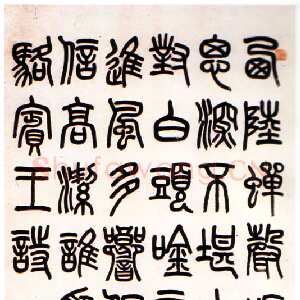 西陸蟬聲
思深不堪
對白頭吟
進風多響
信高潔誰
駱賓王詩